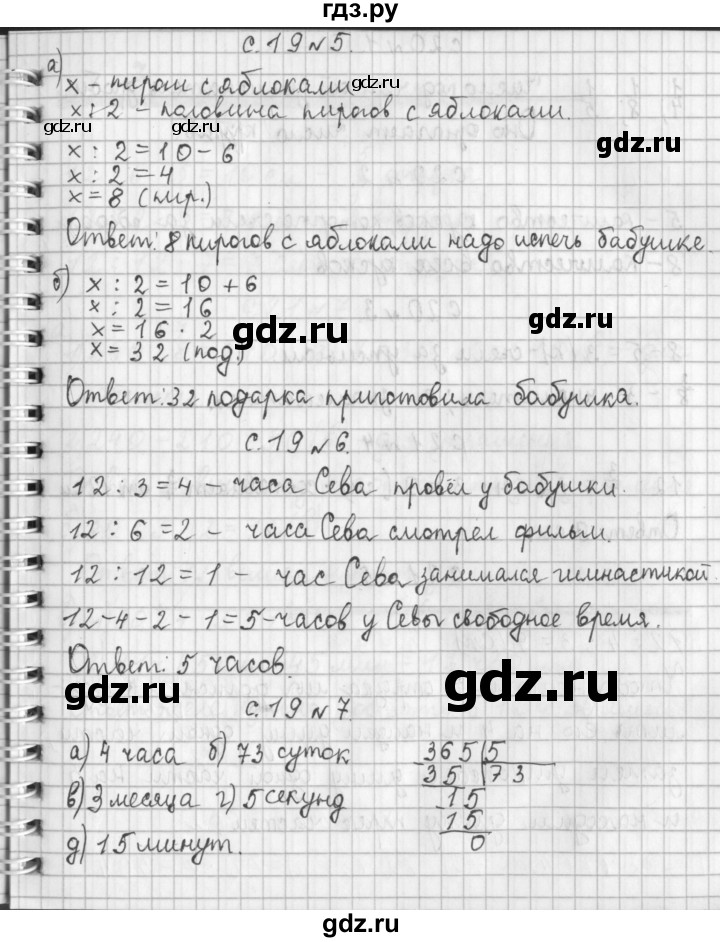 гдз.ру
с. 19 № 5.
а)
х - пироги с яблоками
х : 2 - половина пирогов с яблоками.
х : 2 = 10 - 6
х : 2 = 4
х = 8 (пир.)
Ответ: 8 пирогов с яблоками надо испечь бабушке.
б) х : 2 = 10 + 6
х : 2 = 16
х = 16 · 2
х = 32 (под.)
Ответ: 32 подарка приготовила бабушка.
с. 19 № 6.
12 : 3 = 4 - часа Сева провёл у бабушки.
12 : 6 = 2 - часа Сева смотрел фильм.
12 : 12 = 1 - час Сева занимался гимнастикой.
12 - 4 - 2 - 1 = 5 - часов у Севы свободное время.
Ответ: 5 часов.
с. 19 № 7.
а) 4 часа б) 73 суток
в) 3 месяца г) 5 секунд
д) 15 минут.
365 5
35 73
15
15
0
gdz.ru
gdz.ru
gdz.ru
gdz.ru
gdz.ru
gdz.ru
gdz.ru
gdz.ru
gdz.ru
gdz.ru
gdz.ru
gdz.ru
gdz.ru